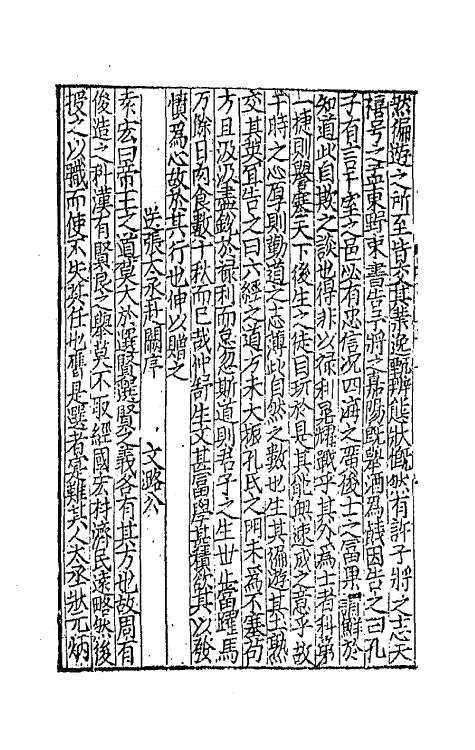 然徧遊之所至皆交其業逸能狀慨然有訴子將之志天
禧号之孟東野東書告予將之嘉陽既舉酒為餞因告之曰孔
子有言十室之邑必有忠信況四海之廣後士之富果謂鮮於
知道此自欺之談也得非以祿利戰乎其為士者科第
一捷則譽塞天下後生之徒目玩於是其能無速成之意乎故
干時之心厚則勤道之志薄此自然之數也生其徧遊甚熟
交其我宜告之曰六經之道方未大振孔氏之門未為不塞苟
方且汲汲盡銳於祿利而怠忽斯道則君子之生世豈當躍馬
万餘日肉食數千秋而已哉仲舒生文甚富學甚積欲其以發
憤為心故於其行也伸以贈之
送張丞赴闕序 文潞公
泰宏曰帝王之道莫大於選賢選賢之義各有其方也故周有
俊造之科漢有賢良之舉莫不取經國宏材濟民遠略然後
授之以職而使不失其任也膺是選者寔難其人大丞狀元炳